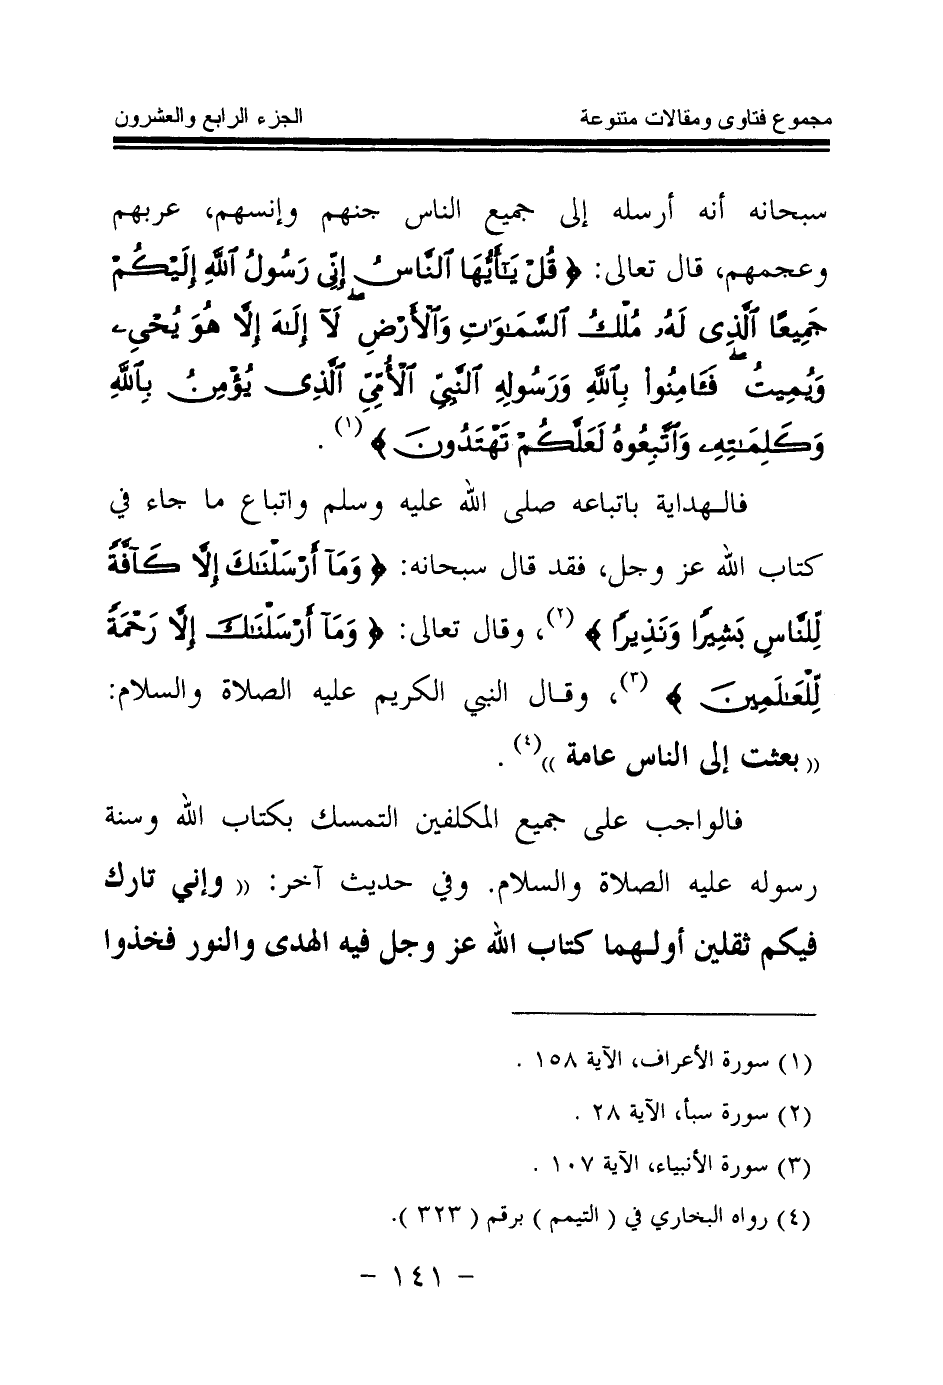 مجموع فتاوى ومقالات متنوعة الجزء الرابع والعشرون
سبحانه أنه أرسله إلى جميع الناس جنهم وإنسهم، عربهم
وعجمهم، قال تعالى: ﴿ قُلْ يَـٰٓأَيُّهَا ٱلنَّاسُ إِنِّى رَسُولُ ٱللَّهِ إِلَيْكُمْ
جَمِيعًا ٱلَّذِى لَهُۥ مُلْكُ ٱلسَّمَـٰوَٰتِ وَٱلْأَرْضِ ۖ لَآ إِلَـٰهَ إِلَّا هُوَ يُحْىِۦ
وَيُمِيتُ ۖ فَـَٔامِنُوا۟ بِٱللَّهِ وَرَسُولِهِ ٱلنَّبِىِّ ٱلْأُمِّىِّ ٱلَّذِى يُؤْمِنُ بِٱللَّهِ
وَكَلِمَـٰتِهِۦ وَٱتَّبِعُوهُ لَعَلَّكُمْ تَهْتَدُونَ ﴾ (١) .
فالهداية باتباعه صلى الله عليه وسلم واتباع ما جاء في
كتاب الله عز وجل، فقد قال سبحانه: ﴿ وَمَآ أَرْسَلْنَـٰكَ إِلَّا كَآفَّةً
لِّلنَّاسِ بَشِيرًا وَنَذِيرًا ﴾ (٢)، وقال تعالى: ﴿ وَمَآ أَرْسَلْنَـٰكَ إِلَّا رَحْمَةً
لِّلْعَـٰلَمِينَ ﴾ (٣)، وقال النبي الكريم عليه الصلاة والسلام:
(( بعثت إلى الناس عامة ))(٤) .
فالواجب على جميع المكلفين التمسك بكتاب الله وسنة
رسوله عليه الصلاة والسلام. وفي حديث آخر: (( وإني تارك
فيكم ثقلين أولهما كتاب الله عز وجل فيه الهدى والنور فخذوا
(١) سورة الأعراف، الآية ١٥٨ .
(٢) سورة سبأ، الآية ٢٨ .
(٣) سورة الأنبياء، الآية ١٠٧ .
(٤) رواه البخاري في ( التيمم ) برقم ( ٣٢٣ ).
– ١٤١ –